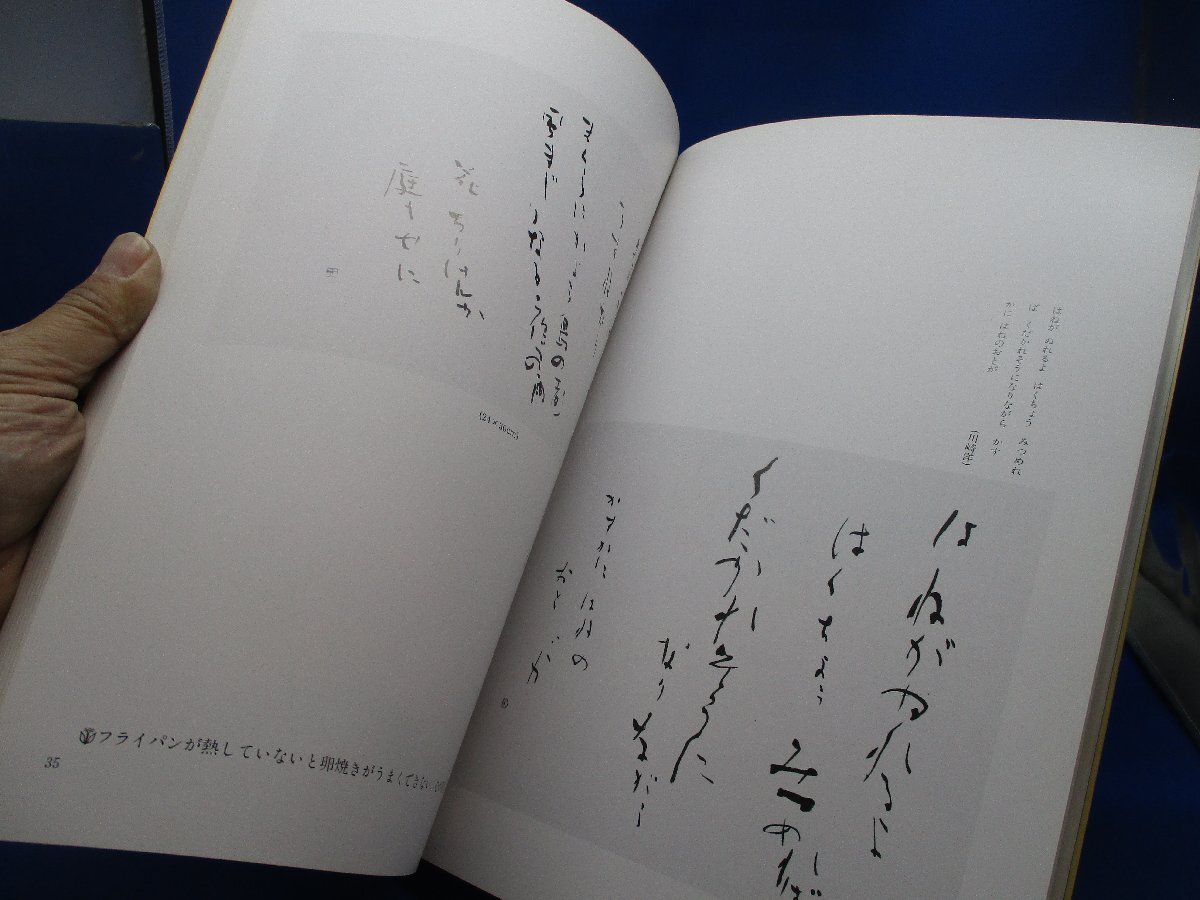 はねが ぬれるよ はくちょう みつめれ
ば くだかれそうになりながら かす
かに はねのおとが
(川崎洋)
はねがぬれるよ
はくちょう
みつめれば
くだかれそうに
なりながら
かすかに はねの
おとが
まくらにかよふ 鳥の声
雪まじりなる
花ちりけんか
庭
(24×36cm)
フライパンが熱していないと卵焼きがうまくできない
35